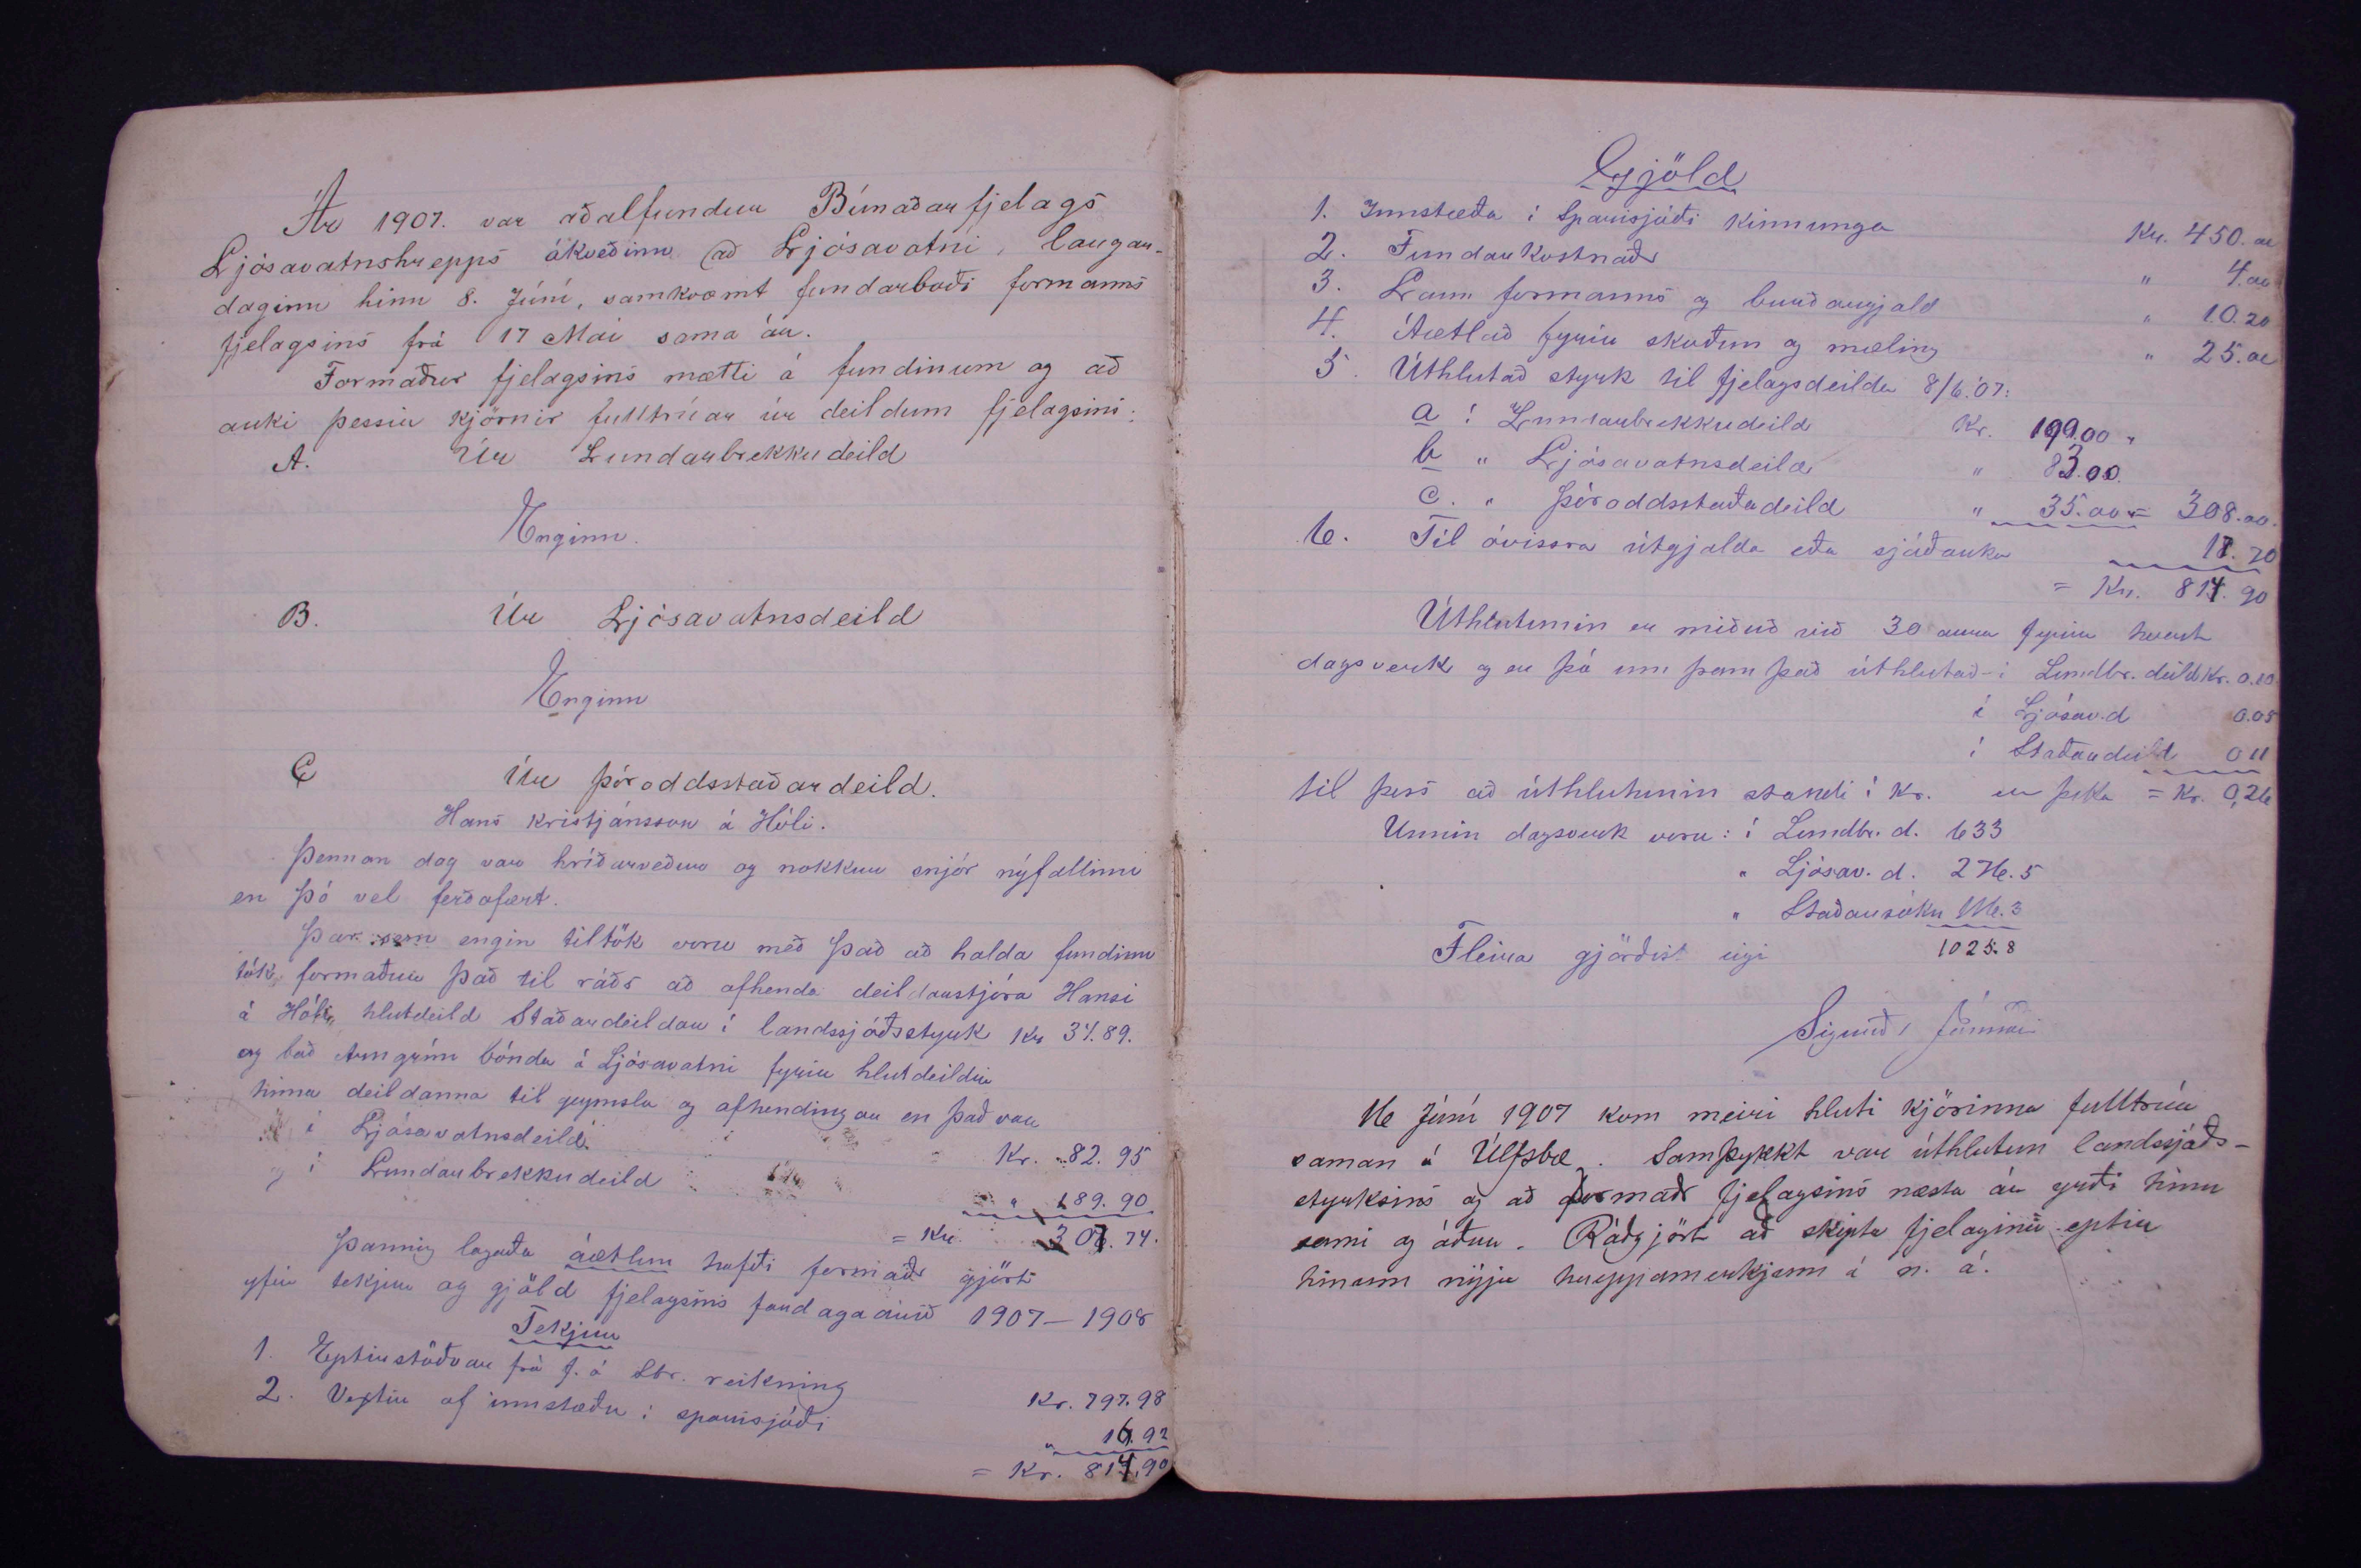 Ár 1907. var aðalfundur Búnaðarfjelags
Ljósavatnshrepps ákveðinn að Ljósavatni, laugar-
daginn hinn 8. Júní, samkvæmt fundarboði formanns
fjelagsins frá 17 Mai sama ár.
Formaður fjelagsins mætti á fundinum og að
auki þessir kjörnir fulltrúar úr deildum fjelagsins:
A. Úr Lundarbrekkudeild
Enginn.
B. Úr Ljósavatnsdeild
Enginn
C Úr Þóroddsstaðardeild.
Hans Kristjánsson á Hóli.
Þennan dag var hríðarveður og nokkur snjór nýfallinn
en þó vel ferðafært.
Þar sem engin tiltök voru með það að halda fundinn
tók formaður það til ráðs að afhenda deildarstjóra Hansi
á Hóli, hlutdeild Staðardeildar í landssjóðsstyrk Kr 34.89.
og bað Arngrím bónda á Ljósavatni fyrir hlutdeildir
hinna deildanna til geymslu og afhendingar en það var
í Ljósavatnsdeild Kr. 82. 95
og í Lundarbrekkudeild " 189. 90
= Kr. 307. 74.
Þannig lagaða áætlun hafði formaðr gjört
yfir tekjur og gjöld fjelagsins fardagaárið 1907–1908
Tekjur
1. Eptirstöðvar frá f. á sbr. reikning Kr. 797.98
2. Vextir af innstæðu í sparisjóði " 16.92
= Kr. 814,90
Gjöld
1. Innstæða í Sparisjóði Kinnunga Kr. 450. oo
2. Fundarkostnaðr " 4.oo
3. Laun formanns og burðargjald " 10.20
4. Áætlað fyrir skoðun og mæling " 25.oo
5. Úthlutað styrk til fjelagsdeilda 8/6.'07:
a í Lundarbrekkudeild Kr. 190.00 "
b " Ljósavatnsdeild " 83.00.
c. " Þóroddsstaðadeild " 35.00 = 308.00.
6. Til óvissra útgjalda eða sjóðauka 17.70
= Kr. 814.90
Úthlutunin er miðuð við 30 aura fyrir hvert
dagsverk og er þá um fram það úthlutað í Lundbr. deild Kr. 0.10
í Ljósav.d 0.05
í Staðardeild 0 11
til þess að úthlutunin standi í kr. er þetta = Kr. 0,26
Unnin dagsverk voru: í Lundbr. d. 633
" Ljósav. d. 276.5
" Staðarsókn 116.3
1025.8
Fleira gjörðist eigi
Sigurð Jónsson
16 Júní 1907 kom meiri hluti kjörinna fulltrúa
saman á Úlfsbæ. Samþykkt var úthlutun landssjóðs-
styrksins og að formaðr fjelagsins næsta ár yrði hinn
sami og áður. Ráðgjört að skipta fjelaginu eptir
hinum nýju hreppamerkjum á n. á.